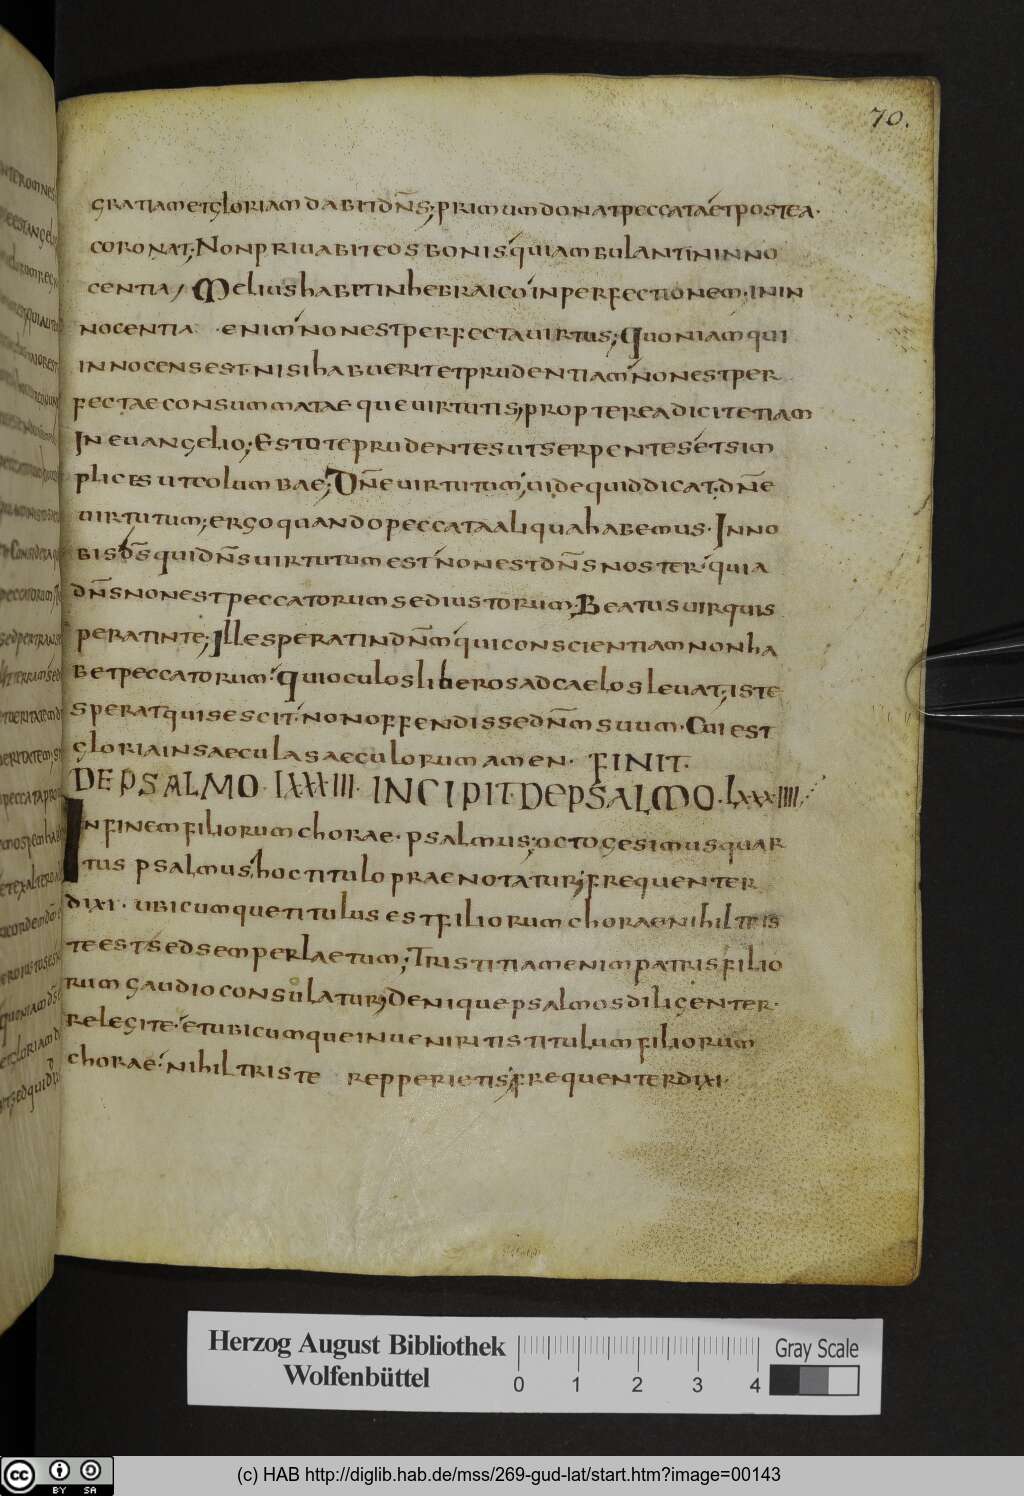 70.
gratiam et gloriam dabit dn̄s; primum donat peccata et postea·
coronat; Non priuabit eos bonis qui ambulant in inno
centia, Melius habet in hebraico in perfectionem· in in
nocentia · enim non est perfecta uirtus; Quoniam qui
innocens est· nisi habuerit et prudentiam non est per
fectae consummatae que uirtutis, propterea dicit etiam
In euangelio; Estote prudentes ut serpentes et sim
plices ut columbae; Dn̄e uirtutum, uide quid dicat· dn̄e
uirtutum; ergo quando peccata aliqua habemus· In no
bis ds̄ qui dn̄s uirtutum est non est dn̄s noster· quia
dn̄s non est peccatorum sed iustorum; Beatus uir qui s
perat in te; Ille sperat in dn̄m qui conscientiam non ha
bet peccatorum· qui oculos liberos ad caelos leuat, iste
sperat qui se scit· non offendisse dn̄m suum· Cui est
gloria in saecula saeculorum amen· FINIT·
DE PSALMO· LXXXIII· INCIPIT· DE PSALMO· LXXXIIII
In finem filiorum chorae· psalmus, octogesimus quar
tus psalmus, hoc titulo praenotatur; frequenter
dixi· ubicumque titulus est filiorum chorae nihil tris
te est sed semper laetum; Tristitiam enim patris filio
rum gaudio consulatur; Denique psalmos diligenter·
relegite· et ubicumque inueniritis titulum filiorum
chorae· nihil triste repperietis, frequenter dixi·
Herzog August Bibliothek
Wolfenbüttel
0 1 2 3 4
Gray Scale
cc BY SA
(c) HAB http://diglib.hab.de/mss/269-gud-lat/start.htm?image=00143